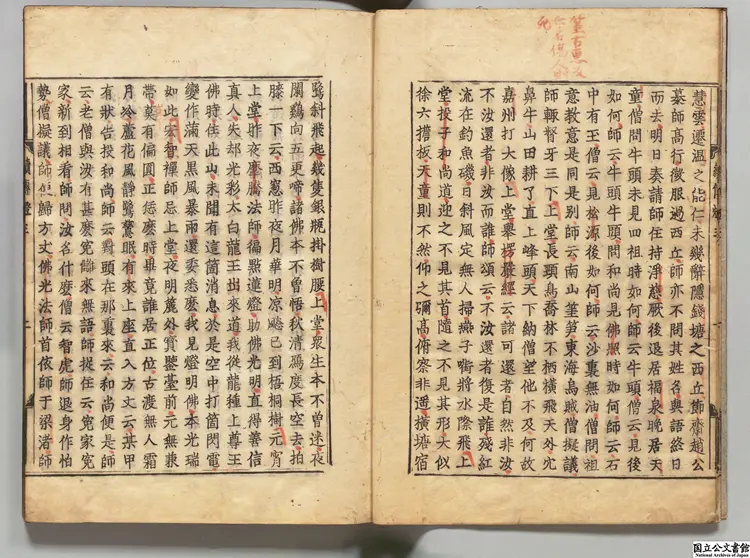 慧雲遷溫之能仁未幾辭隱錢塘之西丘節齋趙公
慕師高行微服過西丘師亦不問其姓名與語終日
而去明日奏請師住持淨慈厥後退居福泉晚居天
童僧問牛頭未見四祖時如何師云牛頭僧云見後
如何師云牛頭牛頭問和尚見佛照時如何師云石
中有玉僧云見松源後如何師云沙裏無油僧問祖
意教意是同是別師云南山筀笋東海烏賊僧擬議
師輙督牙三下上堂長頸鳥喬林不栖橫飛天外穴
鼻牛山田耕了直上峰頭天下衲僧望他不及何故
嘉州打大像上堂舉楞嚴經云諸可還者自然非汝
不汝還者非汝而誰師頌云不汝還者復是誰殘紅
流在釣魚磯日斜風定無人掃燕子啣將水際飛上
堂投子和尚道迎之不見其首隨之不見其形大似
徐六擔板天童則不然仰之彌高俯察非遥橫塘宿
鷺斜飛起幾隻銀瓶掛樹腰上堂衆生本不曾迷衣
闌鷄向五更啼諸佛本不曾悟秋清鴈度長空去拍
膝一下云西窓昨夜月華明凉飇已到梧桐樹元宵
上堂昨夜摩騰法師徧點蓮燈助佛光明直得善信
真人失却光彩太白龍王出來道我從龍種上尊王
佛時住此山未聞有這箇消息於是空中打箇閃電
變作滿天黑風暴雨還委悉麼我見燈明佛本光瑞
如此宏智禪師忌上堂夜明簾外寶鑒臺前元無裏
帶莫有偏圓正恁麼時畢竟誰居正位古渡無人霜
月冷蘆花風靜鷺鷥眠有來上座直入方丈云某甲
有狀告投和尚云師云對頭在那裏來云和尚便是師
云老僧與汝有甚麼寃讎來無語師捉住云寃家寃
家新到相看師問汝名什麼僧云智虎師退身作怕
勢僧擬議師便歸方丈佛光法師首依師于梁渚師